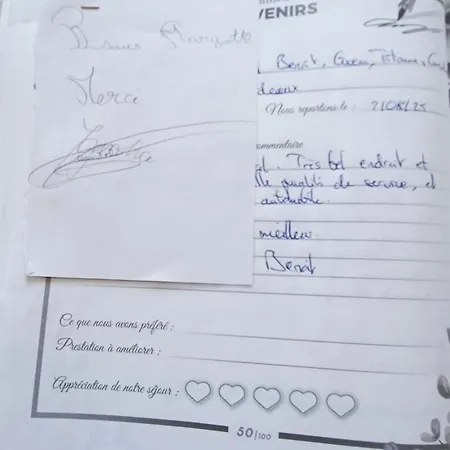 VENIRS
Bisous Margotte
Merci
Benoit, Gwenn, Titouan,
deaux
Nous repartons le : 21/08/25
ommentaire
Très bel endroit et
qualité de service, et
automobile.
meilleur.
Benoit
Ce que nous avons préféré :
Prestation à améliorer :
Appréciation de notre séjour :
50/100